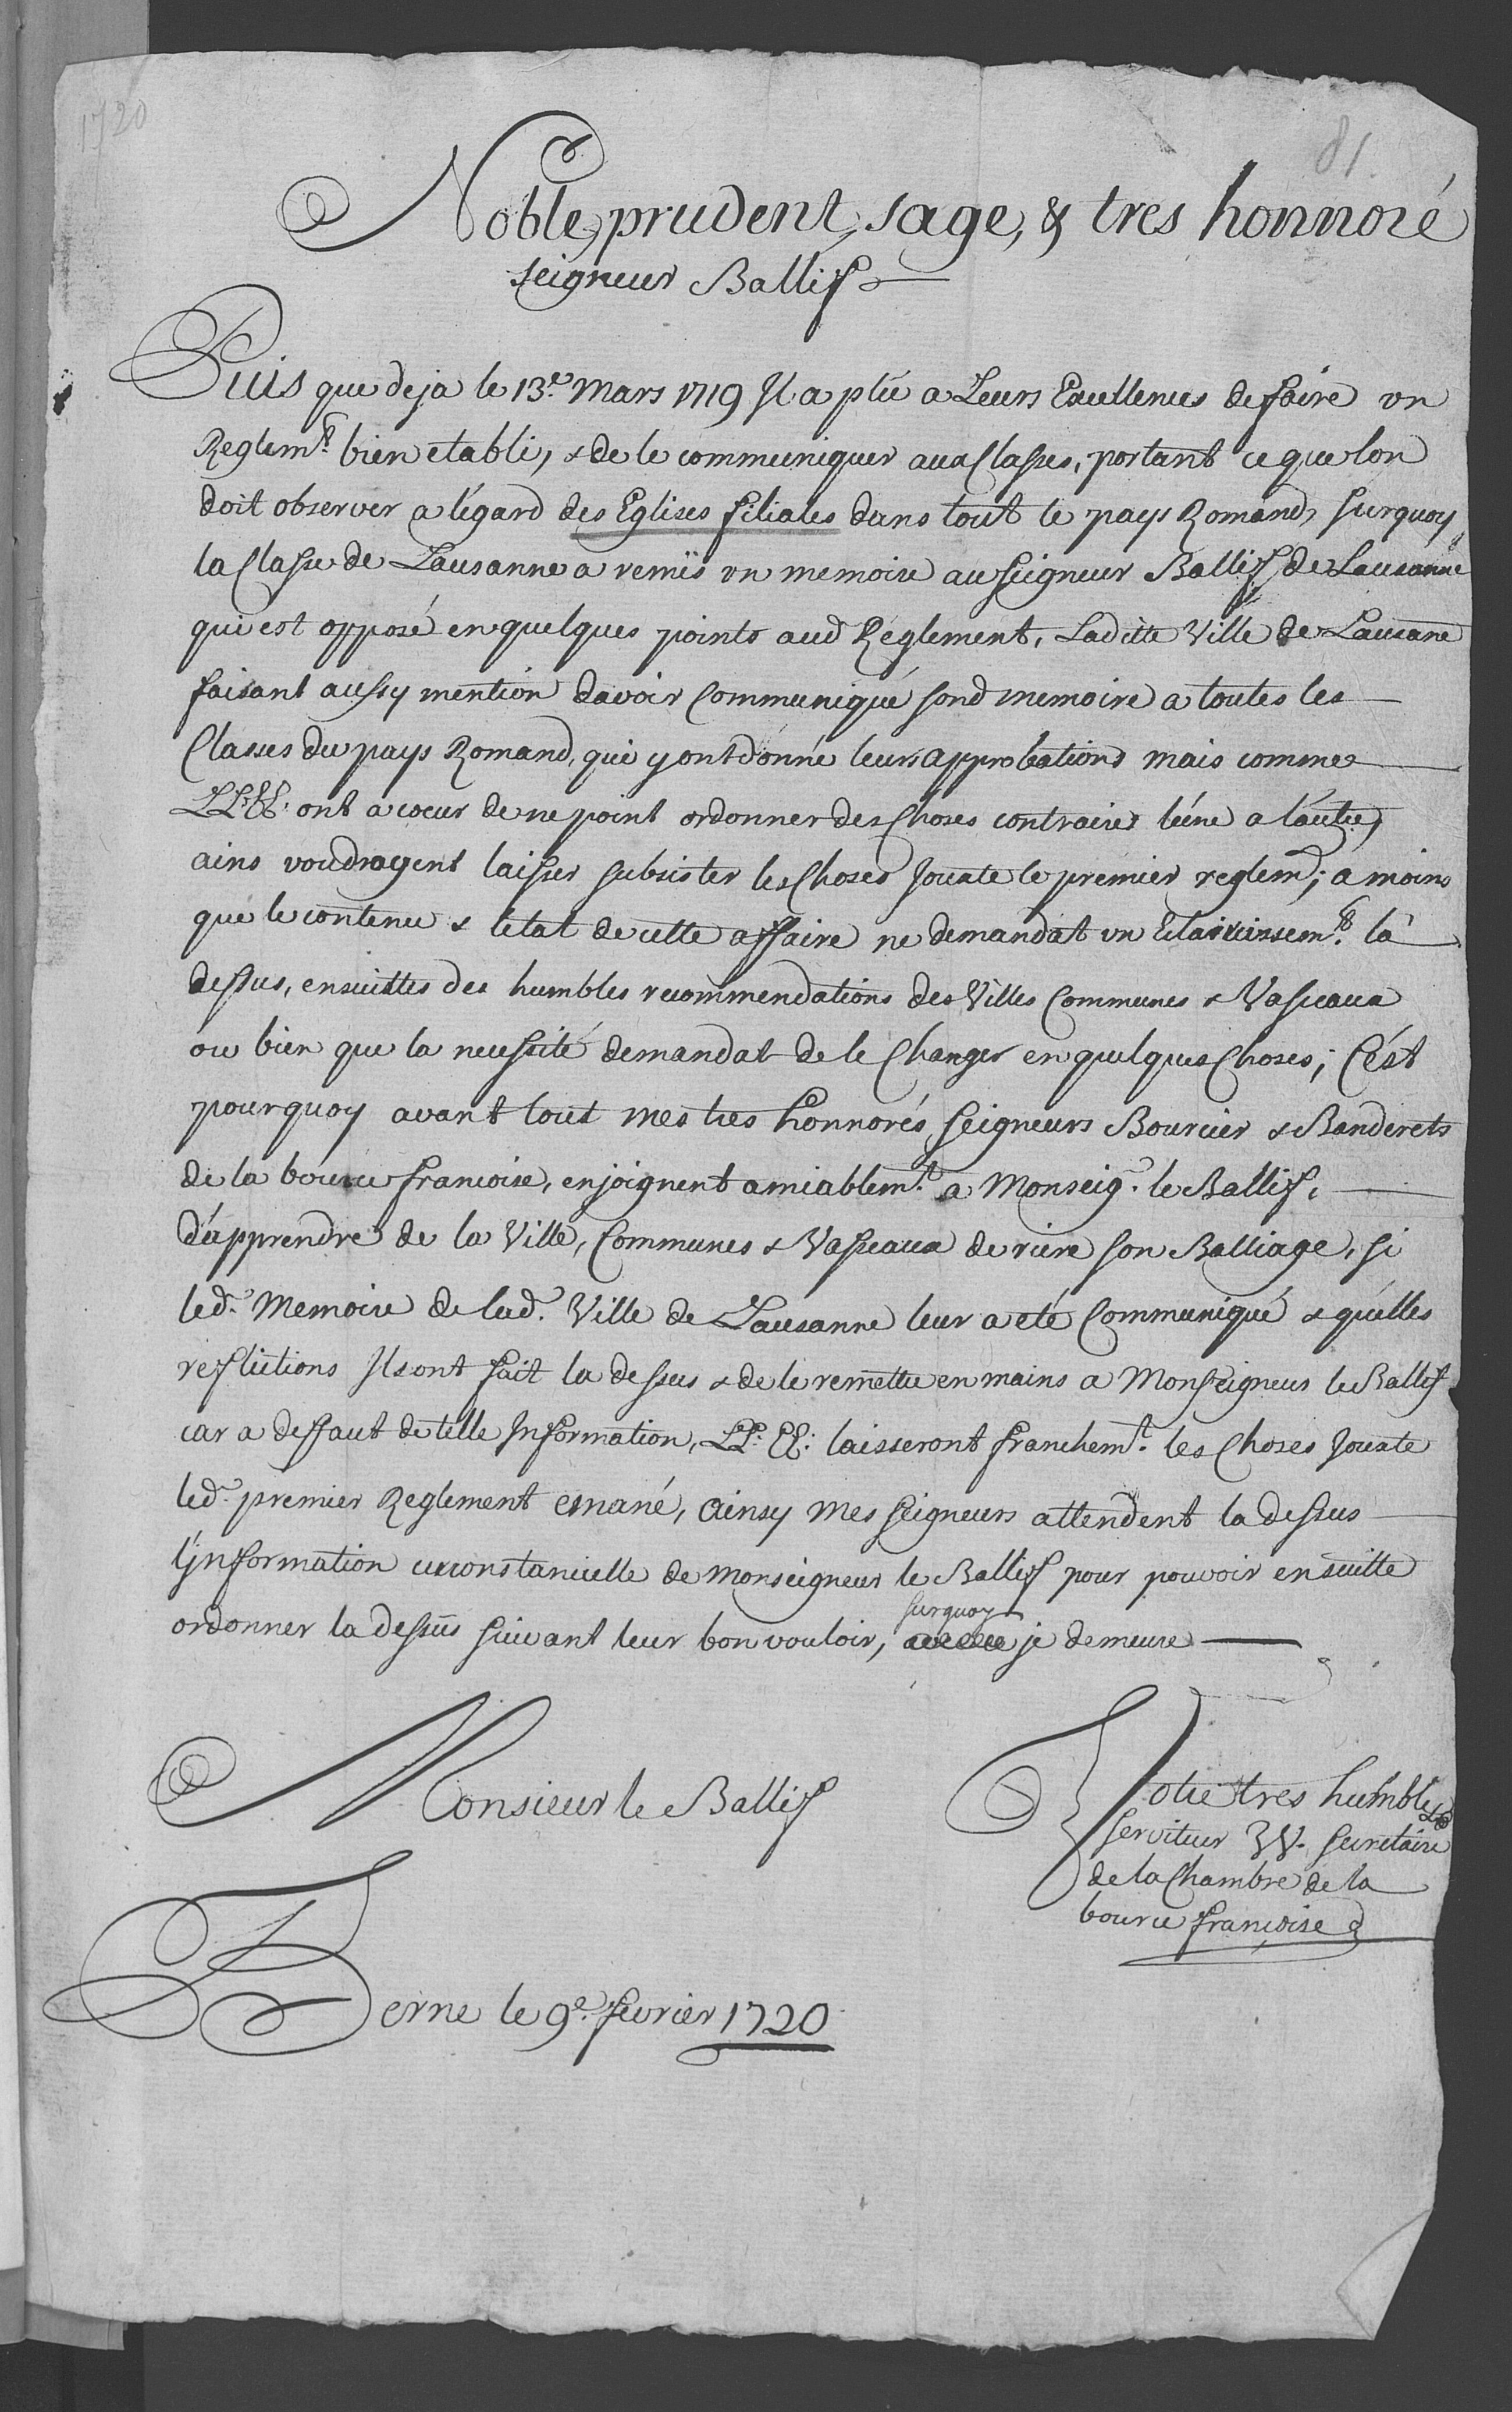 1720
81.
Noble, prudent, sage, & tres honnoré
seigneur Ballif
Puis que deja le 13.e Mars 1719 Il a plû a Leurs Excellences de faire un
Reglem.t bien etabli, & de le communiquer aux Classes, portant ce que lon
doit observer a légard des Eglises filiales dans tout le pays Romand, surquoy
la Classe de Lausanne a remis un memoire au seigneur Ballif de Lausanne
qui est opposé en quelques points aud Réglement, Laditte Ville de Lausane
faisant aussy mention davoir Communiqué sond memoire a toutes les
Classes du pays Romand, qui y ont donné leurs approbations mais comme
LL: EE: ont a coeur de ne point ordonner des Choses contraires lúne a láutre,
ains voudroyent laisser subsister les Choses Jouxte le premier reglem.t; a moins
que le contenu & létat de cette affaire ne demandat un Eclaircissem.t là
dessus, ensuittes des humbles recommendations des Villes Communes & Vasseaux
ou bien que la necessité demandat de le Changer en quelques Choses; C'ést
pourquoy avant tout mes tres honnorés seigneurs Bourcier & Banderets
de la bource francoise, enjoignent amiablem.t a Monseig.r le Ballif,
dápprendre de la Ville, Communes & Vasseaux de riere son Balliage, si
led. Memoire de lad. Ville de Lausanne leur a eté Communiqué & quélles
reflections Ils ont fait la dessus & de le remettre en mains a Monseigneur le Ballif
car a deffaut de telle Information, LL: EE: laisseront franchem.t les Choses Jouxte
led. premier Reglement emané, Ainsy Mes seigneurs attendent la dessus
l'Information circonstancielle de Monseigneur le Ballif pour pouvoir ensuitte
ordonner la dessus suivant leur bon vouloir, surquoy je demeure
Monsieur le Ballif
Votre tres humble &
serviteur ZW. secretaire
de la Chambre de la
bource francoise
Berne le 9.e fevrier 1720